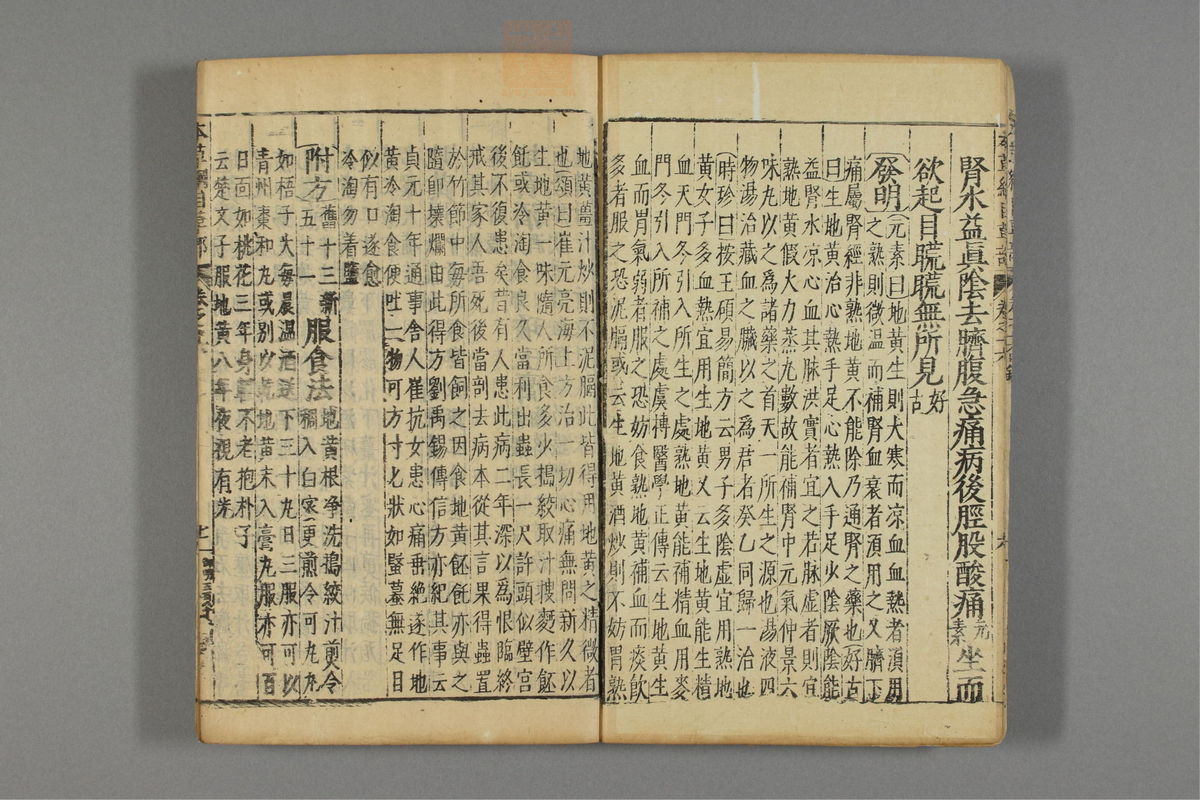 腎水益眞陰去臍腹急痛病後脛股酸痛元素坐而
欲起目𥆨𥆨無所見好古
發明元素曰地黃生則大寒而凉血血熱者須用
之熟則微温而補腎血衰者須用之又臍下
痛屬腎經非熟地黃不能除乃通腎之藥也好古
曰生地黃治心熱手足心熱入手足少陰厥陰能
益腎水凉心血其脉洪實者宜之若脉虛者則宜
熟地黃假火力蒸九數故能補腎中元氣仲景六
味丸以之爲諸藥之首天一所生之源也湯液四
物湯治藏血之臟以之爲君者癸乙同歸一治也
時珍曰按王碩易簡方云男子多陰虛宜用熟地
黃女子多血熱宜用生地黃又云生地黃能生精
血天門冬引入所生之處熟地黃能補精血用麥
門冬引入所補之處虞摶醫學正傳云生地黃生
血而胃氣弱者服之恐妨食熟地黃補血而痰飲
多者服之恐泥膈或云生地黃酒炒則不妨胃熟
地黃薑汁炒則不泥膈此皆得用地黃之精微者
也頌曰崔元亮海上方治一切心痛無問新久以
生地黃一味隨人所食多少搗絞取汁搜麪作飥
飥或冷淘食良久當利出蟲長一尺許頭似壁宮
後不復患矣昔有人患此病二年深以爲恨臨終
戒其家人吾死後當剖去病本從其言果得蟲置
於竹節中每所食皆飼之因食地黃飥飥亦與之
隨卽壞爛由此得方劉禹錫傳信方亦紀其事云
貞元十年通事舍人崔抗女患心痛垂絕遂作地
黃冷淘食便吐一物可方寸匕狀如蝦蟇無足目
似有口遂愈
冷淘勿着鹽
附方舊十三新五十一服食法地黃根净洗搗絞汁煎令
稠入白蜜更煎令可丸丸
如梧子大每晨温酒送下三十丸日三服亦可以
青州棗和丸或别以乾地黃末入膏丸服亦可百
日面如桃花三年身輕不老抱朴子
云楚文子服地黃八年夜視有光